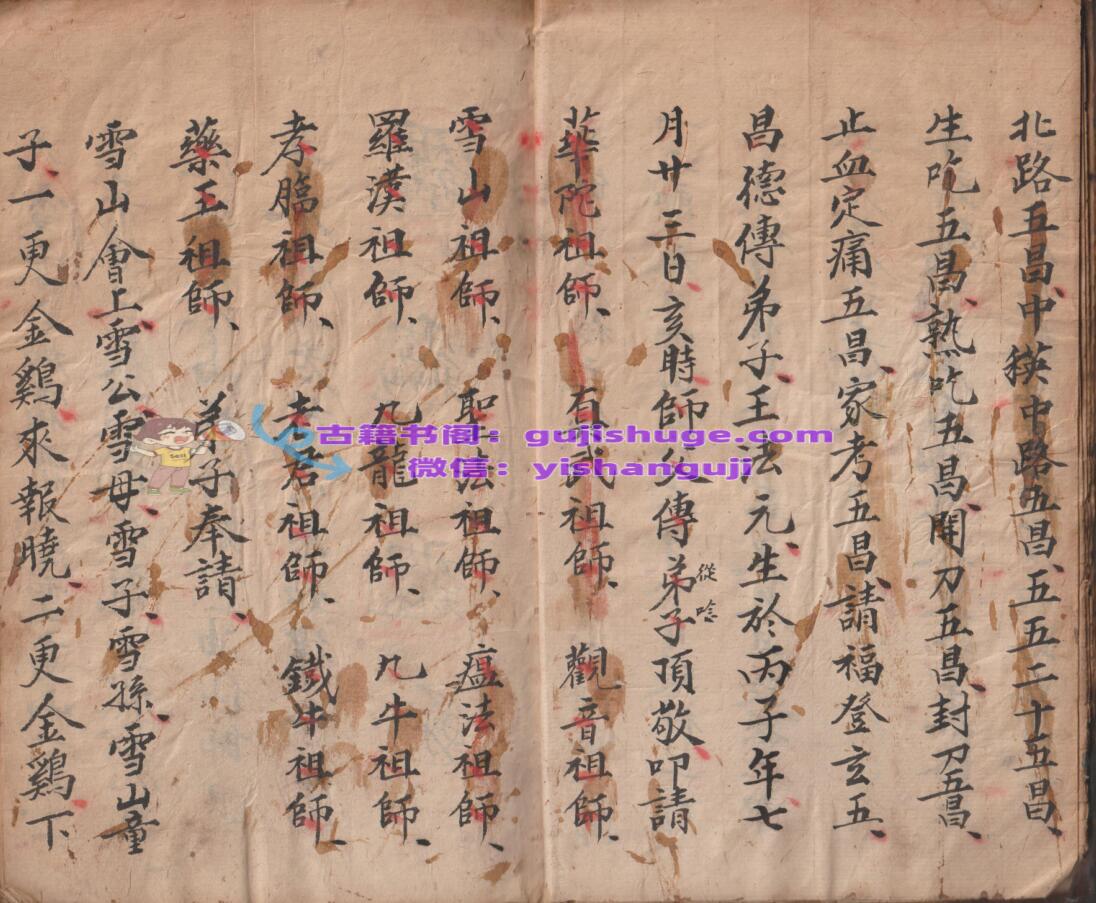 北路五昌、中猰中路五昌、五五二十五昌、
生吃五昌、熟吃五昌、開刀五昌、封刀五昌、
止血定痛五昌、家考五昌、請福登玄五、
昌德傳弟子、王法元、生於丙子年、七
月廿三日亥時師父傳弟子頂敬叩請
從唸
華陀祖師、 祖師、 觀音祖師、
雪山祖師、 聖法祖師、 瘟法祖師、
羅漢祖師、 九龍祖師、 九牛祖師、
孝臨祖師、 老君祖師、 鐵牛祖師、
藥王祖師、 弟子奉請、
雪山會上、雪公、雪母、雪子、雪孫、雪山童
子、一更金鷄來報曉、二更金鷄下
古籍书阁：gujishuge.com
微信：yishanguji